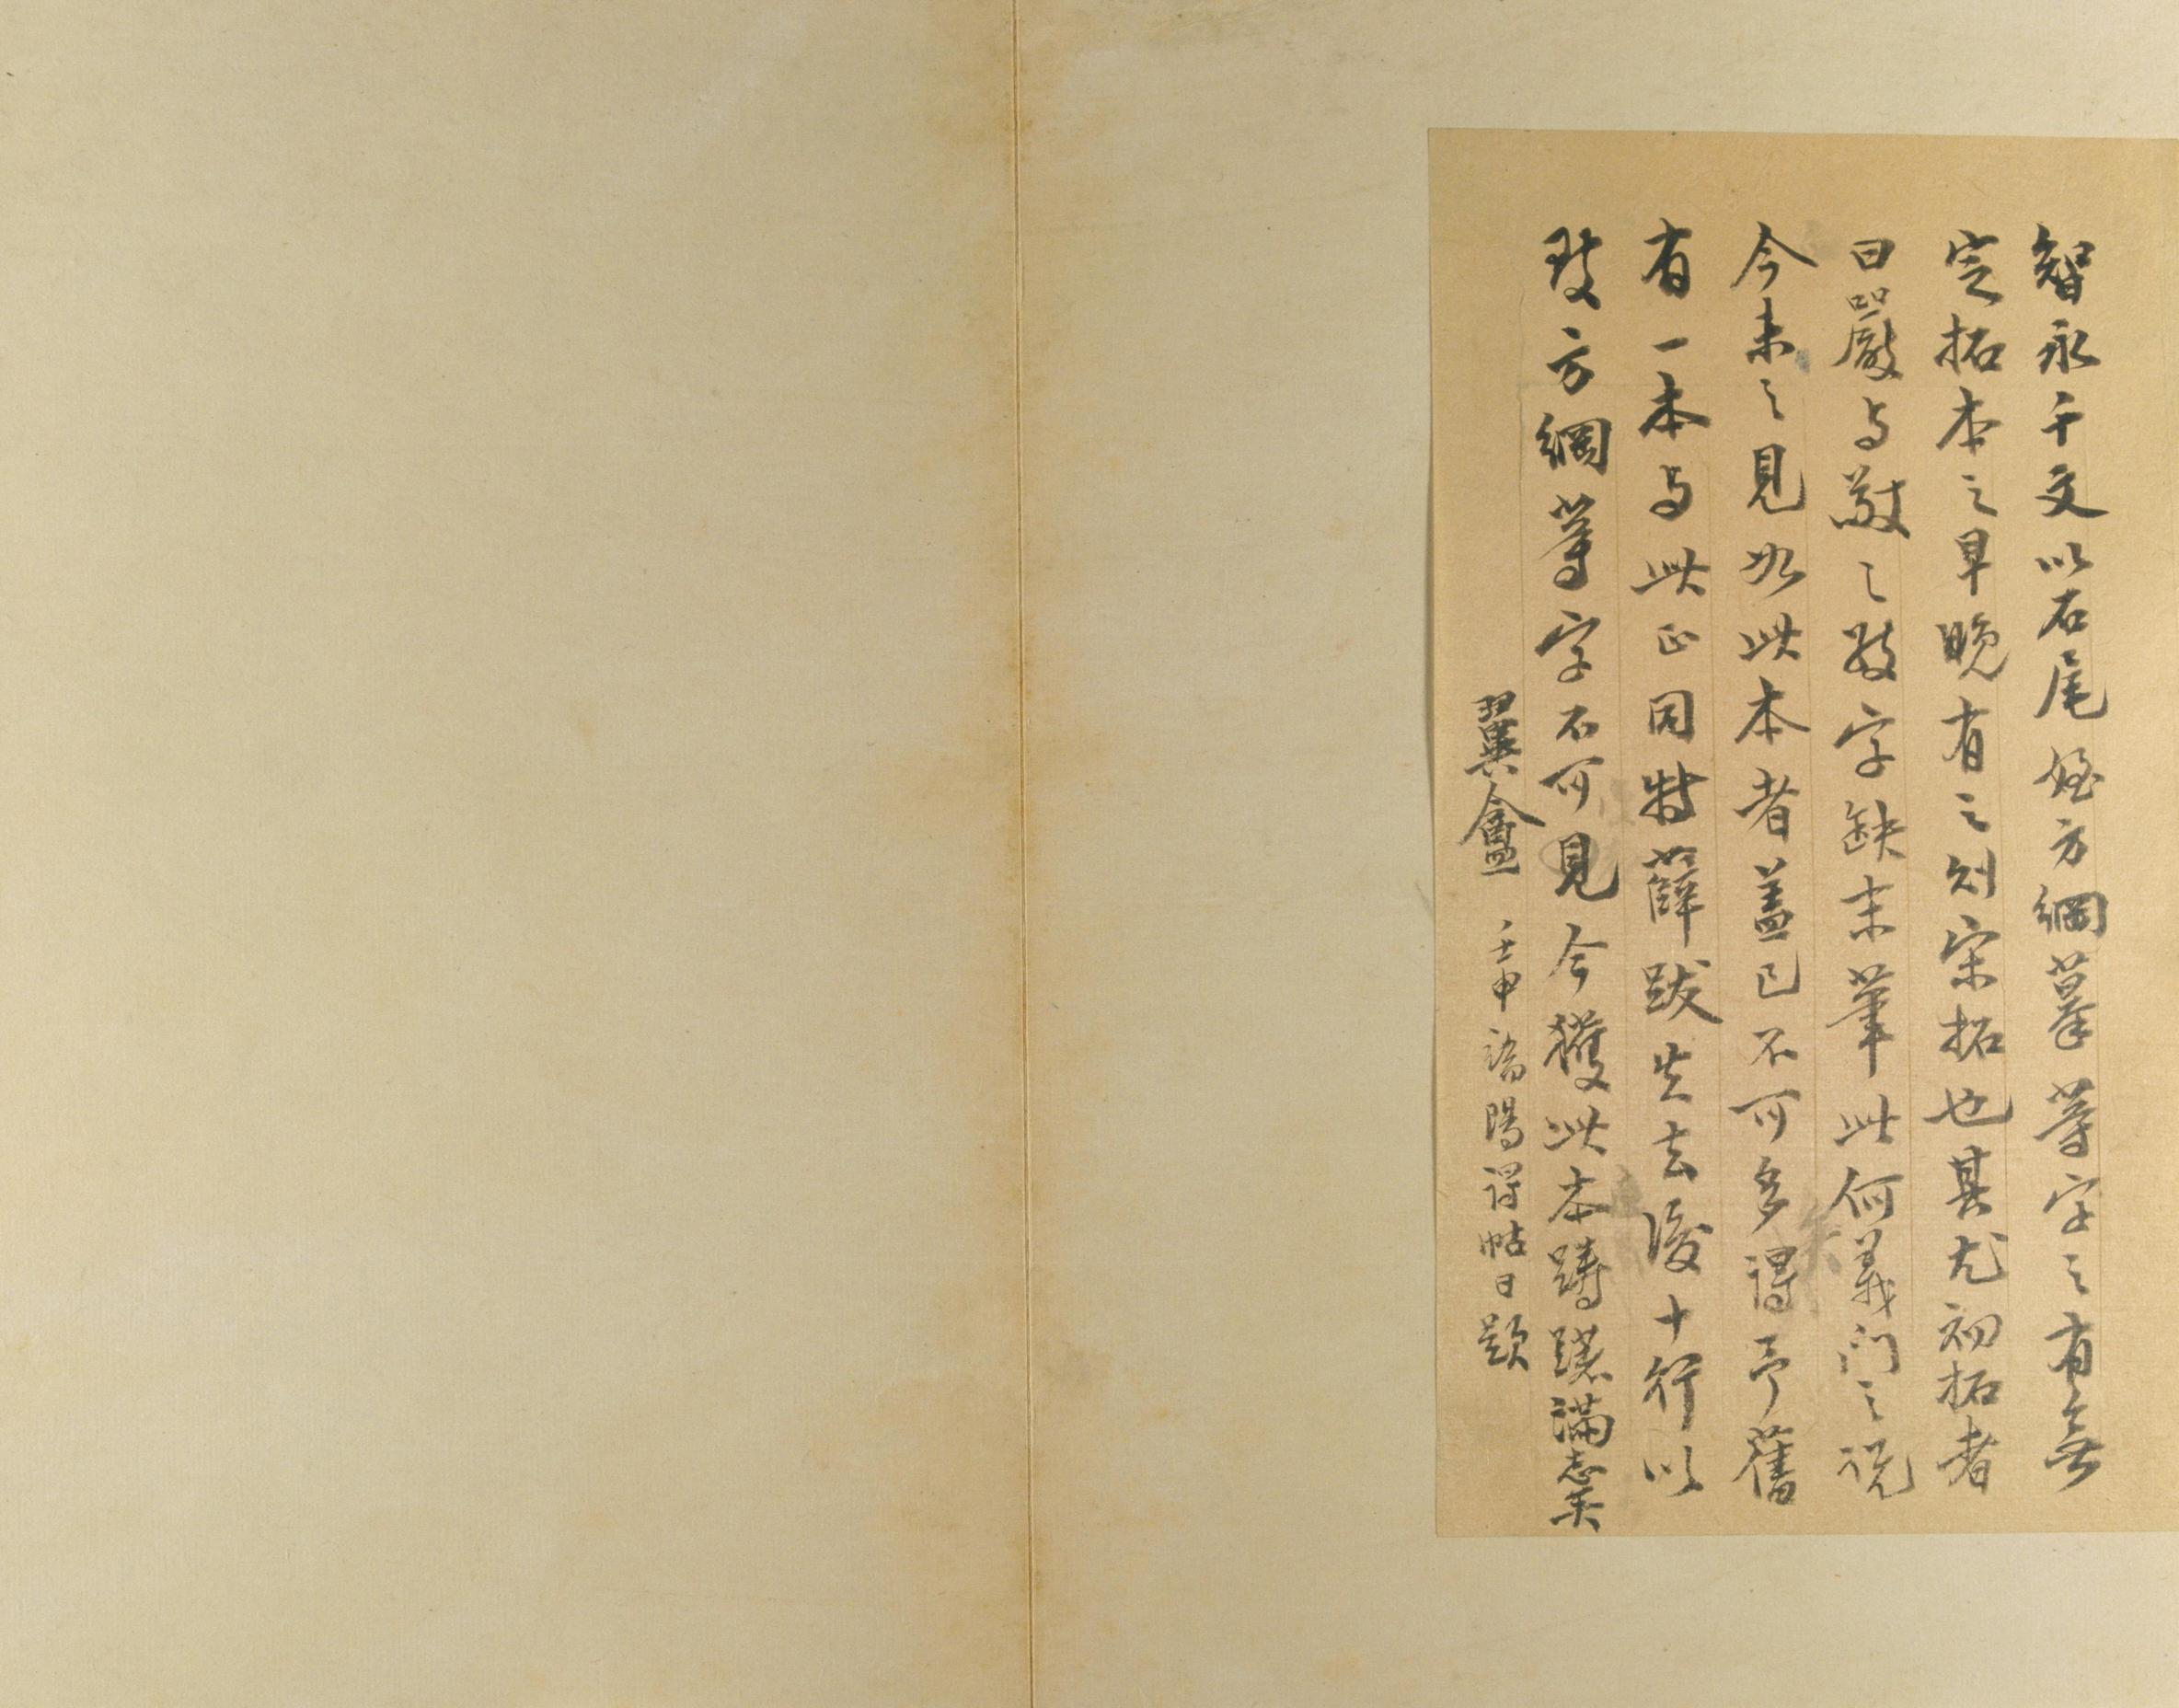 智永千文以石尾姪方綱摹等字之有無
定拓本之早晚有之則宋拓也其尤初拓者
曰嚴与敬之敬字缺末筆此何義門之說
今未之見如此本者蓋已不可多得予舊
有一本与此正同特薛跋失去後十行以
致方綱等字不可見今獲此本躊躇滿志矣
翼盦 壬申端陽得帖日題